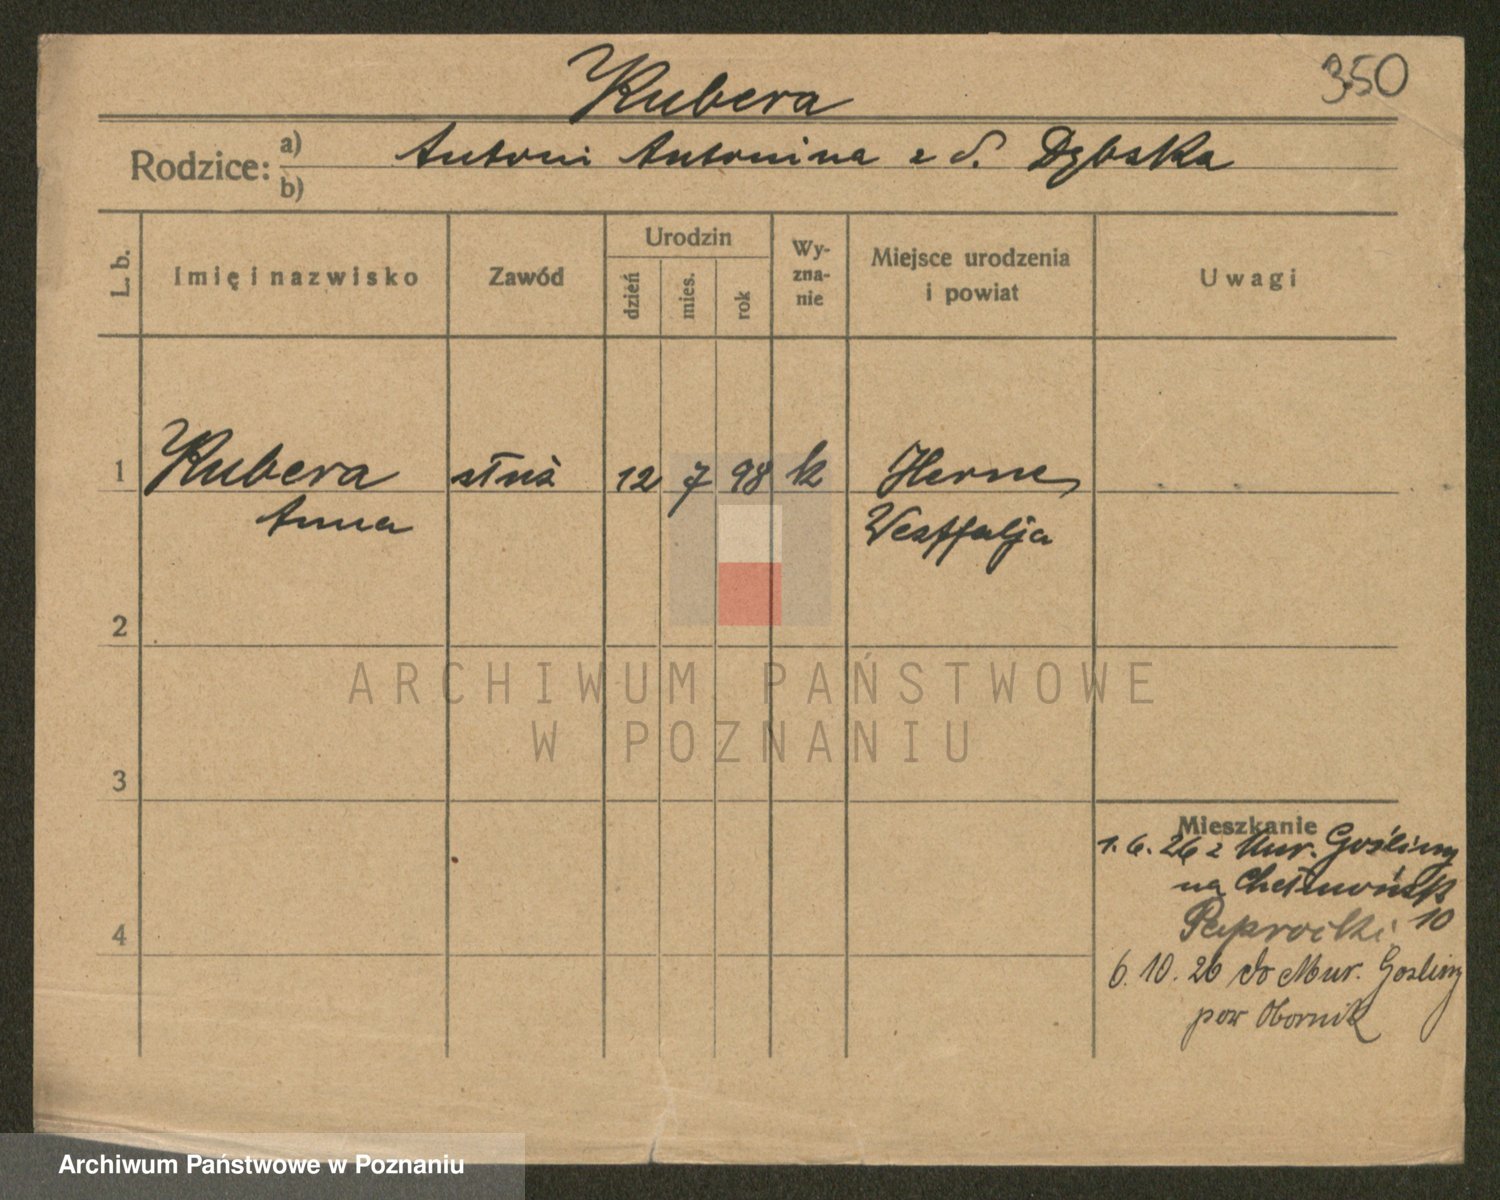 350
Kubera
Rodzice: a) Antoni Antonina z d. Dębska
b)
L. b.
Imię i nazwisko
Zawód
Urodzin
dzień
mies.
rok
Wy-
zna-
nie
Miejsce urodzenia
i powiat
Uwagi
1 Kubera służ 12 7 98 k Herne
Anna Westfalja
2
3
4
Mieszkanie
1. 6. 26 z Mur. Gośliny
na Chełmońsk
10
6. 10. 26 do Mur. Gosliny
pow Obornik
ARCHIWUM PAŃSTWOWE
W POZNANIU
Archiwum Państwowe w Poznaniu